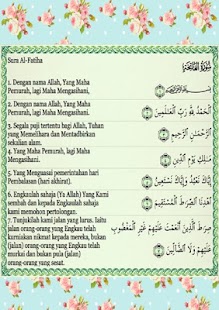 Sura Al-Fatiha
سُورَةُ الْفَاتِحَةِ
1. Dengan nama Allah, Yang Maha
Pemurah, lagi Maha Mengasihani.
بِسْمِ ٱللَّهِ ٱلرَّحْمَٰنِ ٱلرَّحِيمِ
2. Dengan nama Allah, Yang Maha
Pemurah, lagi Maha Mengasihani.
ٱلْحَمْدُ لِلَّهِ رَبِّ ٱلْعَٰلَمِينَ
3. Segala puji tertentu bagi Allah, Tuhan
yang Memelihara dan Mentadbirkan
sekalian alam.
ٱلرَّحْمَٰنِ ٱلرَّحِيمِ
4. Yang Maha Pemurah, lagi Maha
Mengasihani.
مَٰلِكِ يَوْمِ ٱلدِّينِ
5. Yang Menguasai pemerintahan hari
Pembalasan (hari akhirat).
إِيَّاكَ نَعْبُدُ وَإِيَّاكَ نَسْتَعِينُ
6. Engkaulah sahaja (Ya Allah) Yang Kami
sembah dan kepada Engkaulah sahaja
kami memohon pertolongan.
ٱهْدِنَا ٱلصِّرَٰطَ ٱلْمُسْتَقِيمَ
7. Tunjukilah kami jalan yang lurus. Iaitu
jalan orang-orang yang Engkau telah
kurniakan nikmat kepada mereka, bukan
(jalan) orang-orang yang Engkau telah
murkai dan bukan pula (jalan)
orang-orang yang sesat.
صِرَٰطَ ٱلَّذِينَ أَنْعَمْتَ عَلَيْهِمْ غَيْرِ ٱلْمَغْضُوبِ
عَلَيْهِمْ وَلَا ٱلضَّآلِّينَ